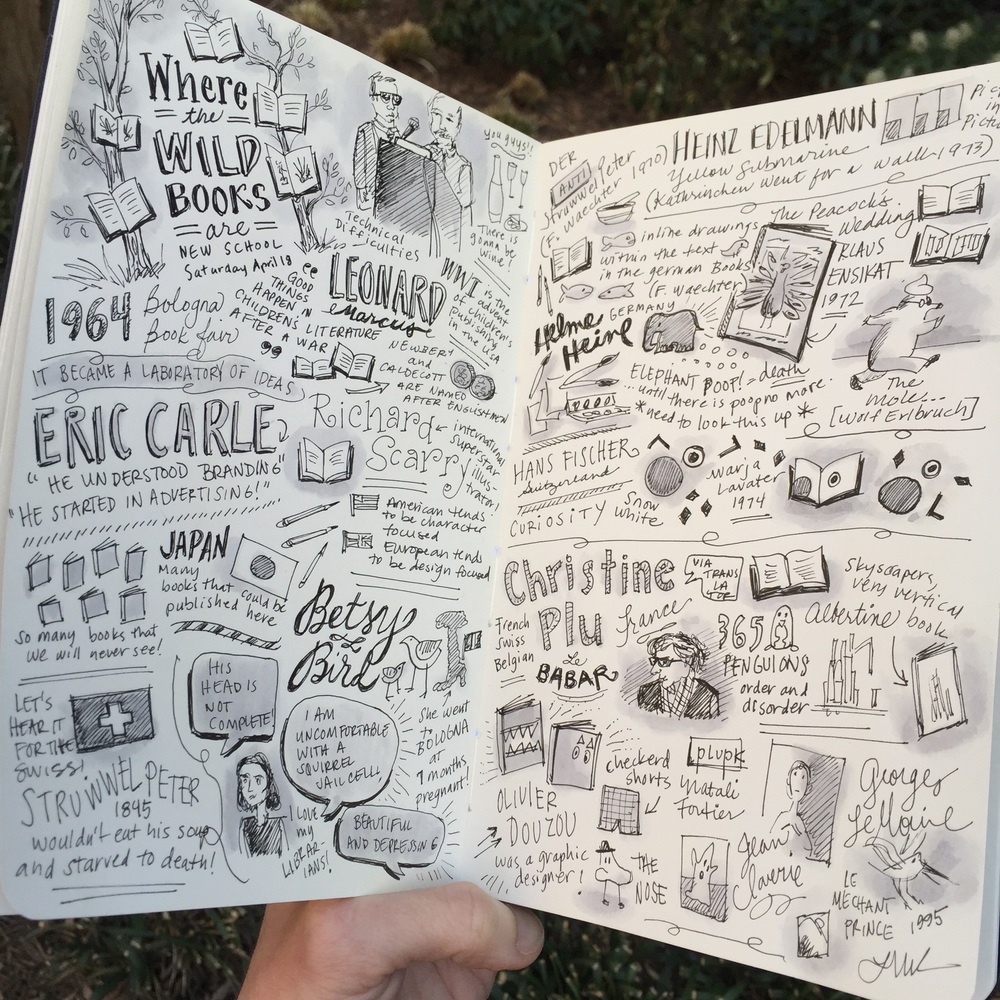 Where
the
WILD
BOOKS
are
NEW SCHOOL
Saturday April 18
you guys!!
There is
gonna be
wine!
Technical
Difficulties
1964
Bologna
Book fair
"GOOD
THINGS
HAPPEN IN
CHILDREN'S LITERATURE
AFTER
A WAR"
LEONARD
Marcus
WWI is the
of advent
children's
publishing
in the USA
NEWBERY
and
CALDECOTT
ARE NAMED
AFTER ENGLISHMEN
IT BECAME A LABORATORY OF IDEAS
ERIC CARLE
"HE UNDERSTOOD BRANDING"
"HE STARTED IN ADVERTISING!"
Richard
Scarry
international
superstar
illus
trator!
American tends
to be character
focused
European tends
to be design focused
JAPAN
Many
books that could be
published here
So many books that
we will never see!
Betsy
Bird
She went
to
BOLOGNA
at
9 months
pregnant!
LET'S
HEAR IT
FOR THE
SWISS!
HIS
HEAD IS
NOT
COMPLETE!
I AM
UNCOMFORTABLE
WITH A
SQUIRREL
JAIL CELL
STRUWWELPETER
1845
wouldn't eat his soup
and starved to death!
I LOVE
my
LIBRAR
IANS!
BEAUTIFUL
AND DEPRESSING
DER
ANTI
Struwwelpeter
(F. Waechter 1970)
HEINZ EDELMANN
Yellow Submarine
(Kathrinchen went for a walk 1973)
inline drawings
within the text
in the german Books
(F. Waechter
GERMANY
The Peacock's
Wedding
KLAUS
ENSIKAT
1972
Helme
Heine
ELEPHANT POOP! = death
...until there is poop no more.
*need to look this up*
The
mole...
[Wolf Erlbruch]
HANS FISCHER
Switzerland
CURIOSITY
Snow
White
Warja
Lavater
1974
Christine
Plu
VIA
TRANS
LA
TOR
French
Swiss
Belgian
France
Le
BABAR
365
PENGUIONS
order and
disorder
Skyscapers,
very vertical
Albertine book
OLIVIER
DOUZOU
was a graphic
designer!
checkerd
shorts
THE
NOSE
plupk
Natali
Fortier
Jean
Claverie
Georges
Lemoine
LE
MECHANT
PRINCE 1995